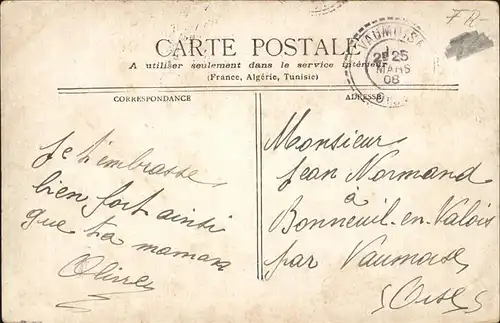 FR-
CARTE POSTALE
A utiliser seulement dans le service intérieur
(France, Algérie, Tunisie)
VAUMOISE
25
MARS
08
CORRESPONDANCE
ADRESSE
Je t'embrasse
bien fort ainsi
que ta maman
Monsieur
Jean Normand
à
Bonneuil-en-Valois
par Vaumoise
(Oise)